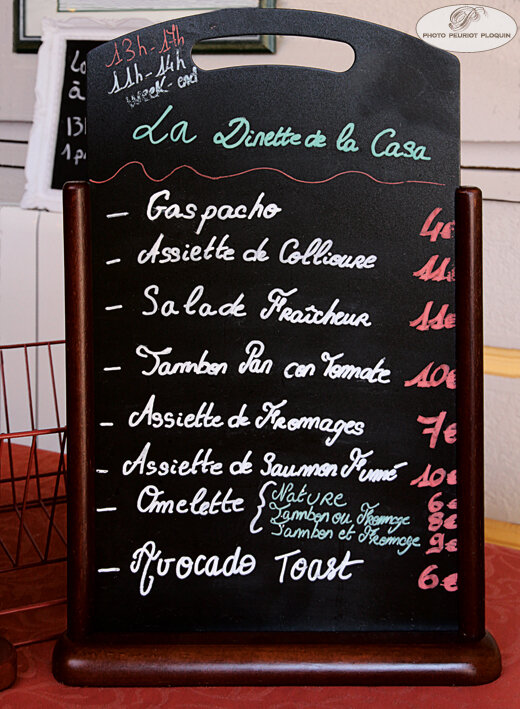 PHOTO PEURIOT PLOQUIN
13h-17h
11h-14h
week-end
La Dinette de la Casa
- Gaspacho 4€
- Assiette de Collioure 11€
- Salade Fraîcheur 11€
- Jambon Pan con Tomate 10€
- Assiette de Fromages 7€
- Assiette de Saumon Fumé 10€
- Omelette { Nature 6€
Jambon ou Fromage 8€
Jambon et Fromage 9€
- Avocado Toast 6€
à
13h